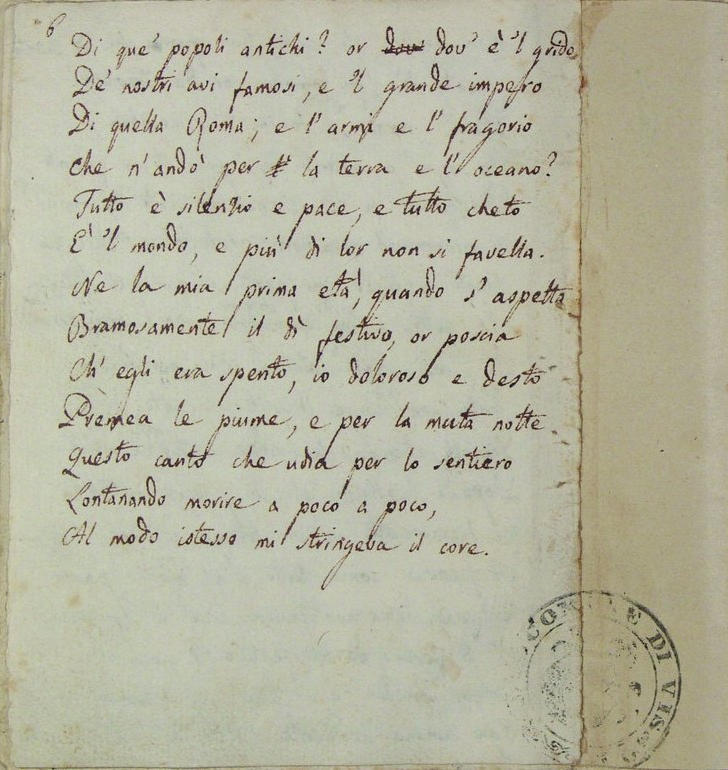 6
Di que' popoli antichi? or dov' dov' è 'l grido
De' nostri avi famosi, e 'l grande impero
Di quella Roma; e l'armi e l' fragorio
Che n'andò per la terra e l'oceano?
Tutto è silenzio e pace, e tutto cheto
E' 'l mondo, e più di lor non si favella.
Ne la mia prima età, quando s'aspetta
Bramosamente il dì festivo, or poscia
Ch' egli era spento, io doloroso e desto
Prèmea le piume, e per la muta notte
Questo canto che udia per lo sentiero
Lontanando morire a poco a poco,
Al modo istesso mi stringeva il core.
COMUNE DI VIS